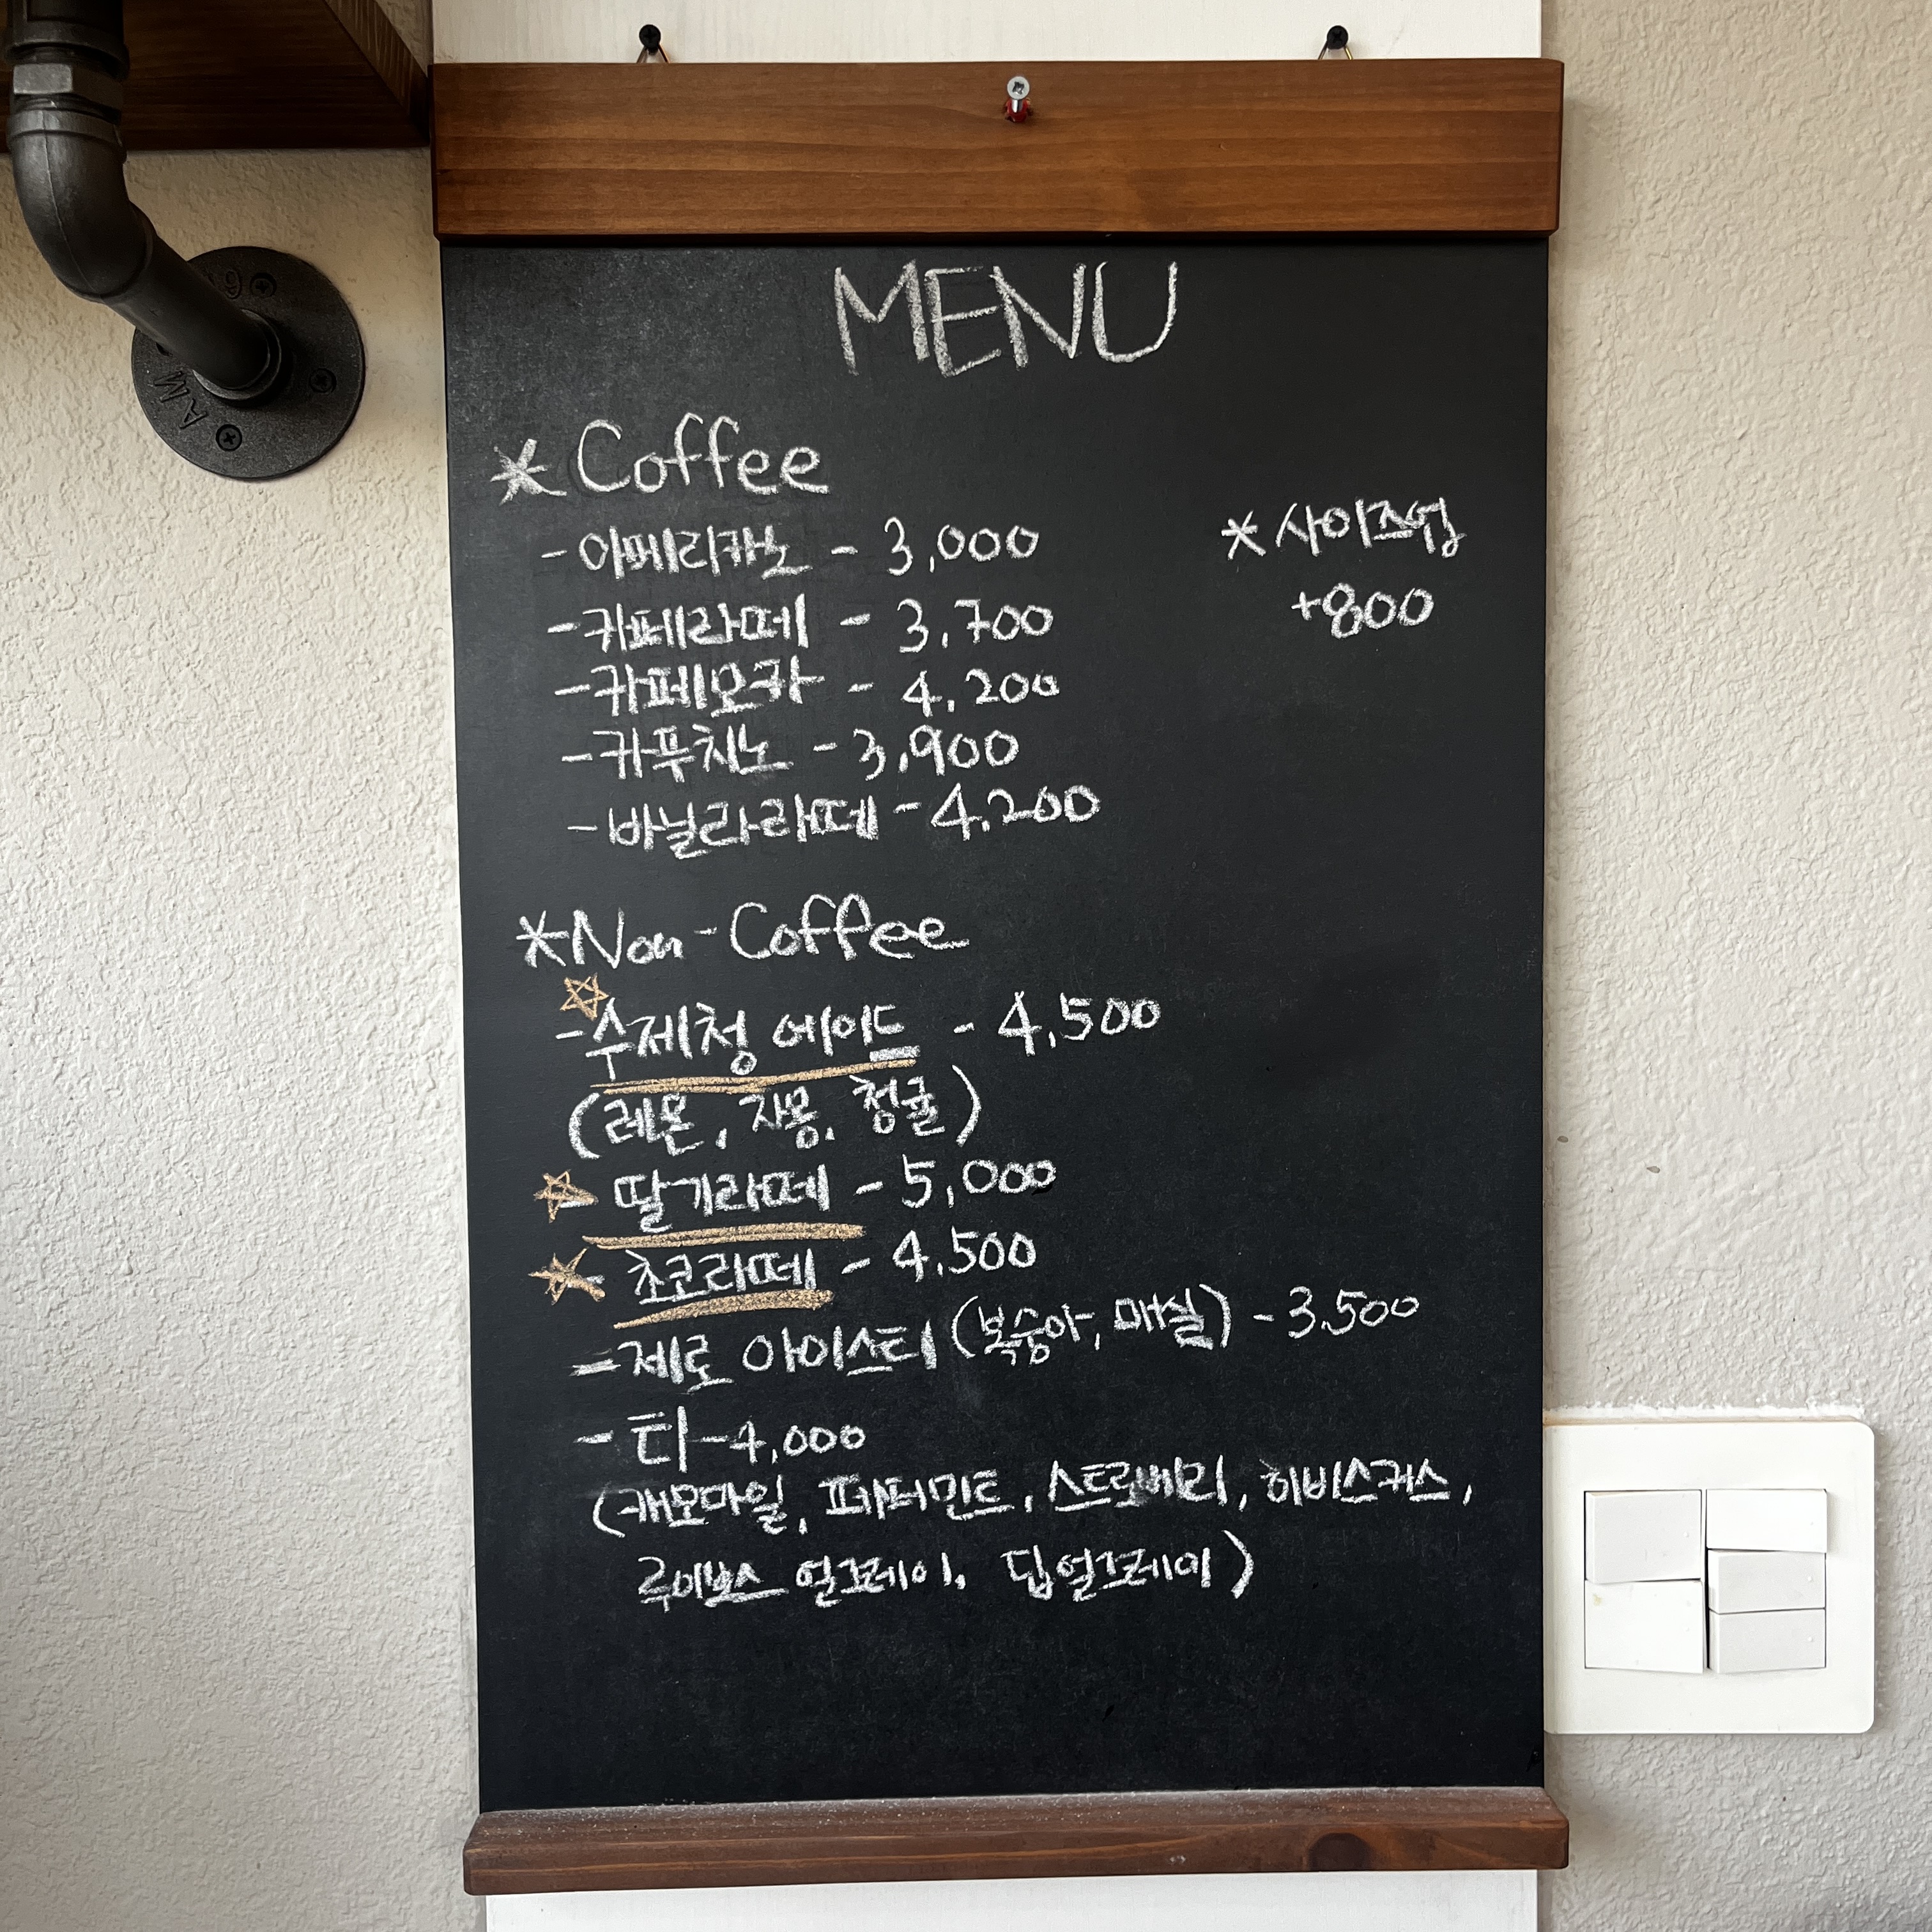 MENU
* Coffee
- 아메리카노 - 3,000
* 사이즈업
+800
- 카페라떼 - 3,700
- 카페모카 - 4,200
- 카푸치노 - 3,900
- 바닐라라떼 - 4,200
* Non-Coffee
☆
- 수제청 에이드 - 4,500
(레몬, 자몽, 청귤)
☆- 딸기라떼 - 5,000
☆- 초코라떼 - 4,500
- 제로 아이스티 (복숭아, 매실) - 3,500
- 티 - 4,000
(캐모마일, 페퍼민트, 스트로베리, 히비스커스,
루이보스 얼그레이, 딥얼그레이)
AM